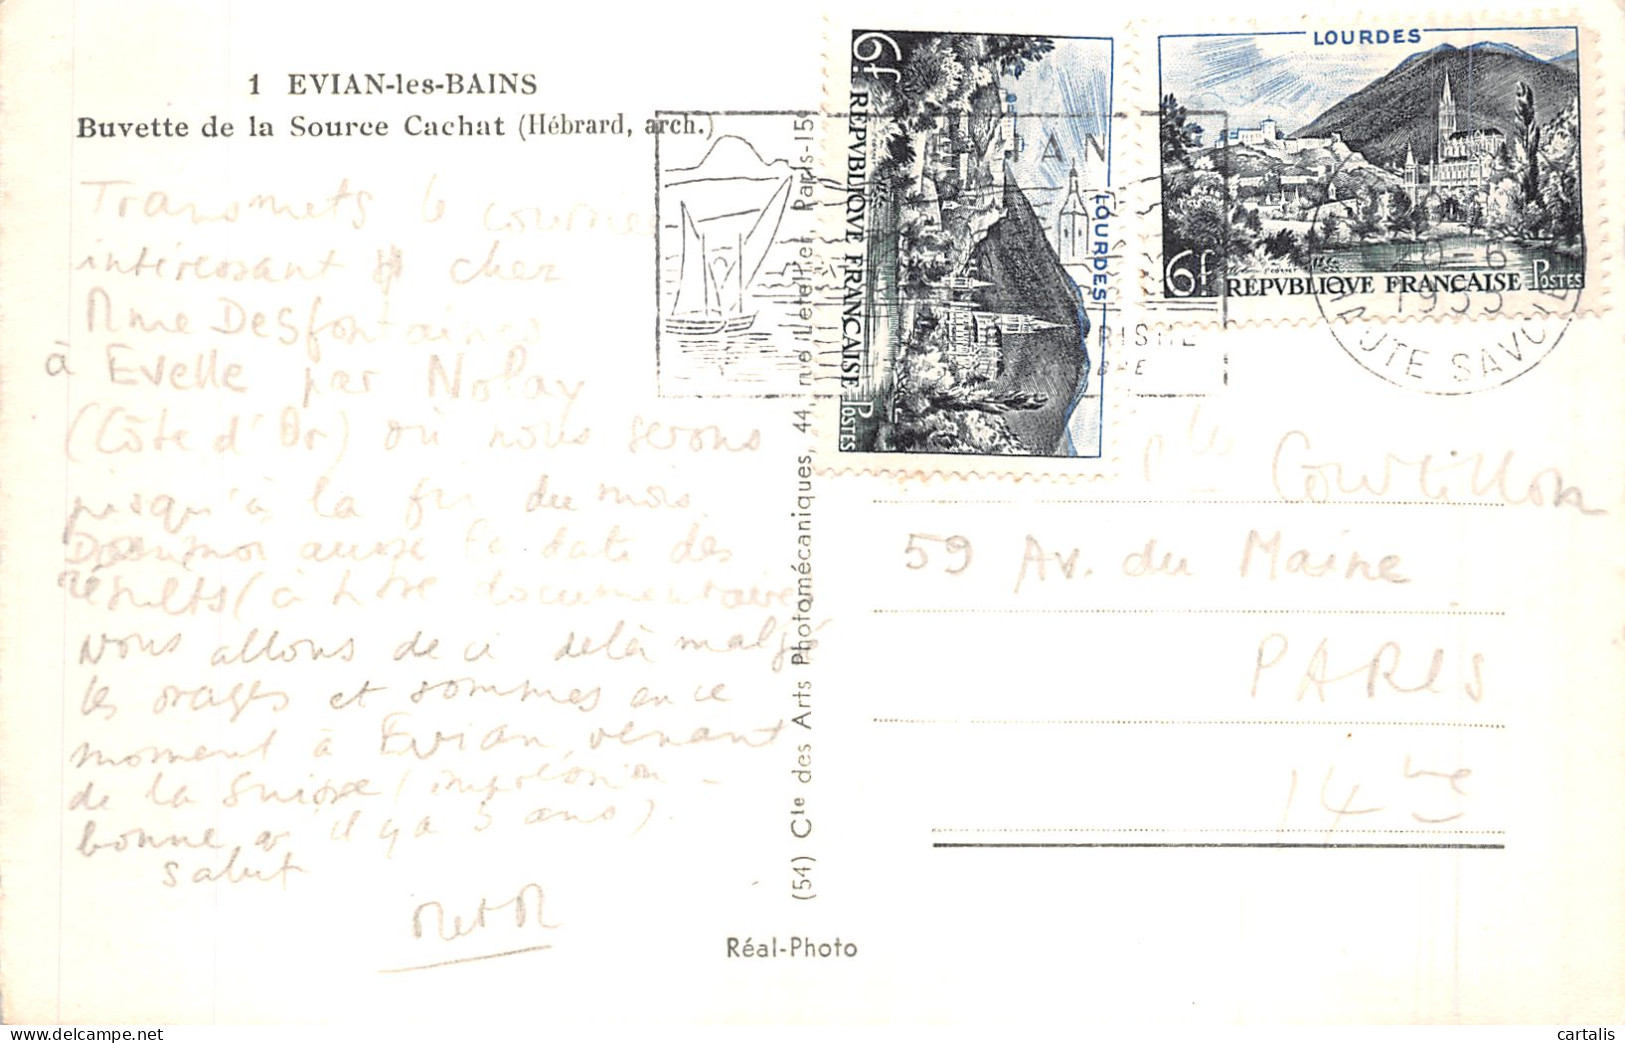 1 EVIAN-les-BAINS
Buvette de la Source Cachat (Hébrard, arch.)
Transmets le courrier
intéressant chez
Mme Desfontaines
à Evelle par Nolay
(Côte d'Or) où nous serons
jusqu'à la fin du mois
Donnez-moi aussi la date des
résults (à titre documentaire,
Nous allons de ci delà malgré
les orages et sommes en ce
moment à Evian, venant
de la Suisse (impression
bonne il y a 5 ans).
Salut
M et M
(54) Cie des Arts Photomécaniques, 44, rue Letellier, Paris-15e
Réal-Photo
6f
REPVBLIQVE FRANÇAISE
POSTES
LOURDES
LOURDES
6f
REPVBLIQVE FRANÇAISE
POSTES
1955
HAUTE SAVOIE
Courtillon
59 Av. du Maine
PARIS
14me
cartalis
www.delcampe.net